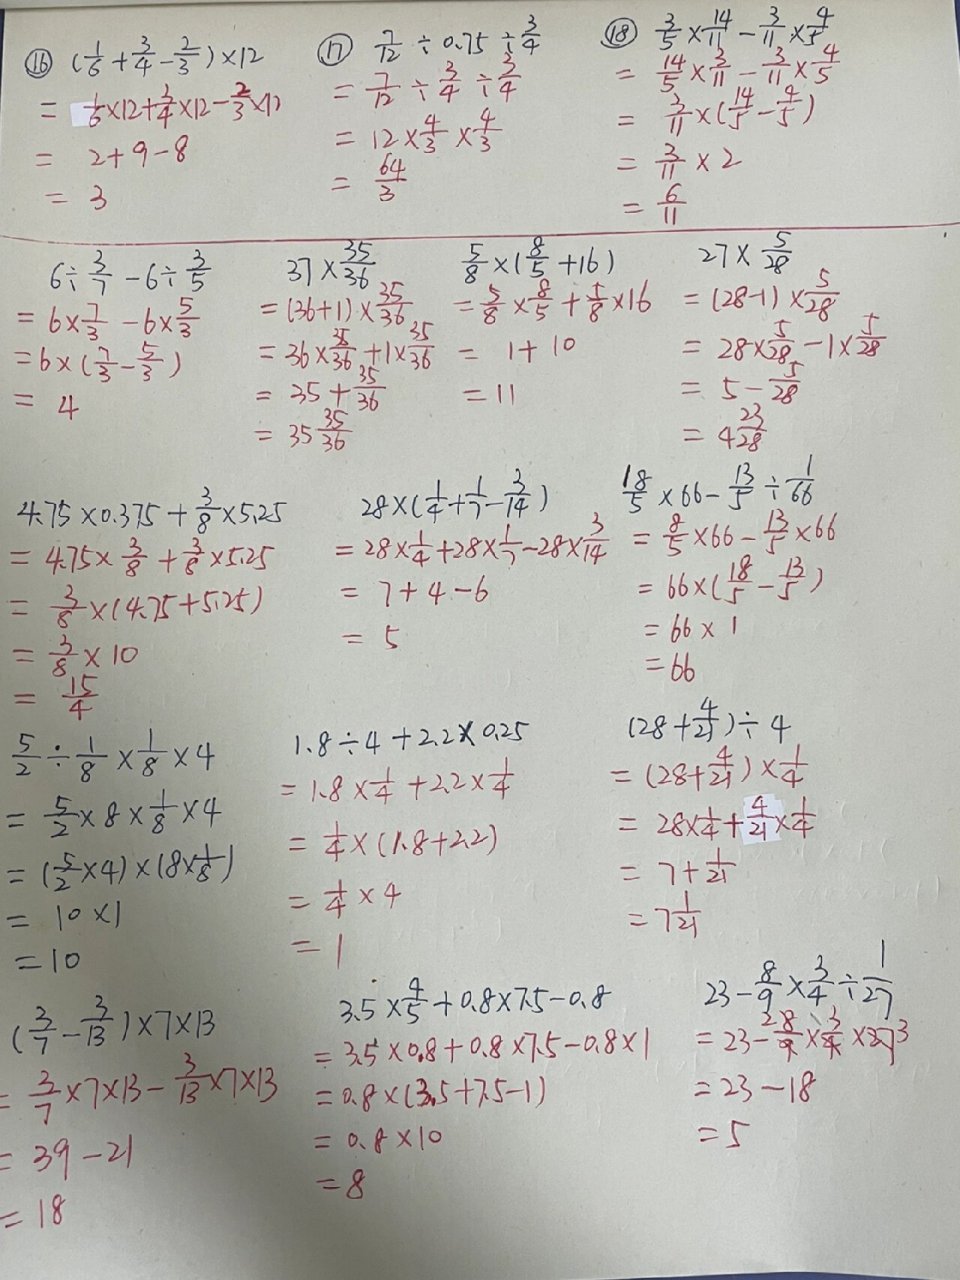 ⑯ (1/6 + 3/4 - 2/3) × 12
= 1/6 × 12 + 3/4 × 12 - 2/3 × 12
= 2 + 9 - 8
= 3
⑰ 7/12 ÷ 0.75 ÷ 3/4
= 7/12 ÷ 3/4 ÷ 3/4
= 12 × 4/3 × 4/3
= 64/3
⑱ 3/5 × 14/11 - 3/11 × 4/5
= 14/5 × 3/11 - 3/11 × 4/5
= 3/11 × (14/5 - 4/5)
= 3/11 × 2
= 6/11
6 ÷ 3/7 - 6 ÷ 3/5
= 6 × 7/3 - 6 × 5/3
= 6 × (7/3 - 5/3)
= 4
37 × 35/36
= (36+1) × 35/36
= 36 × 35/36 + 1 × 35/36
= 35 + 35/36
= 35 35/36
5/8 × (8/5 + 16)
= 5/8 × 8/5 + 5/8 × 16
= 1 + 10
= 11
27 × 5/28
= (28-1) × 5/28
= 28 × 5/28 - 1 × 5/28
= 5 - 5/28
= 4 23/28
4.75 × 0.375 + 3/8 × 5.25
= 4.75 × 3/8 + 3/8 × 5.25
= 3/8 × (4.75 + 5.25)
= 3/8 × 10
= 15/4
28 × (1/4 + 1/7 - 3/14)
= 28 × 1/4 + 28 × 1/7 - 28 × 3/14
= 7 + 4 - 6
= 5
18/5 × 66 - 13/5 ÷ 1/66
= 8/5 × 66 - 13/5 × 66
= 66 × (18/5 - 13/5)
= 66 × 1
= 66
5/2 ÷ 1/8 × 1/8 × 4
= 5/2 × 8 × 1/8 × 4
= (5/2 × 4) × (8 × 1/8)
= 10 × 1
= 10
1.8 ÷ 4 + 2.2 × 0.25
= 1.8 × 1/4 + 2.2 × 1/4
= 1/4 × (1.8 + 2.2)
= 1/4 × 4
= 1
(28 + 4/21) ÷ 4
= (28 + 4/21) × 1/4
= 28 × 1/4 + 4/21 × 1/4
= 7 + 1/21
= 7 1/21
(3/7 - 3/13) × 7 × 13
= 3/7 × 7 × 13 - 3/13 × 7 × 13
= 39 - 21
= 18
3.5 × 4/5 + 0.8 × 7.5 - 0.8
= 3.5 × 0.8 + 0.8 × 7.5 - 0.8 × 1
= 0.8 × (3.5 + 7.5 - 1)
= 0.8 × 10
= 8
23 - 8/9 × 3/4 ÷ 1/27
= 23 - 8/9 × 3/4 × 27
= 23 - 18
= 5